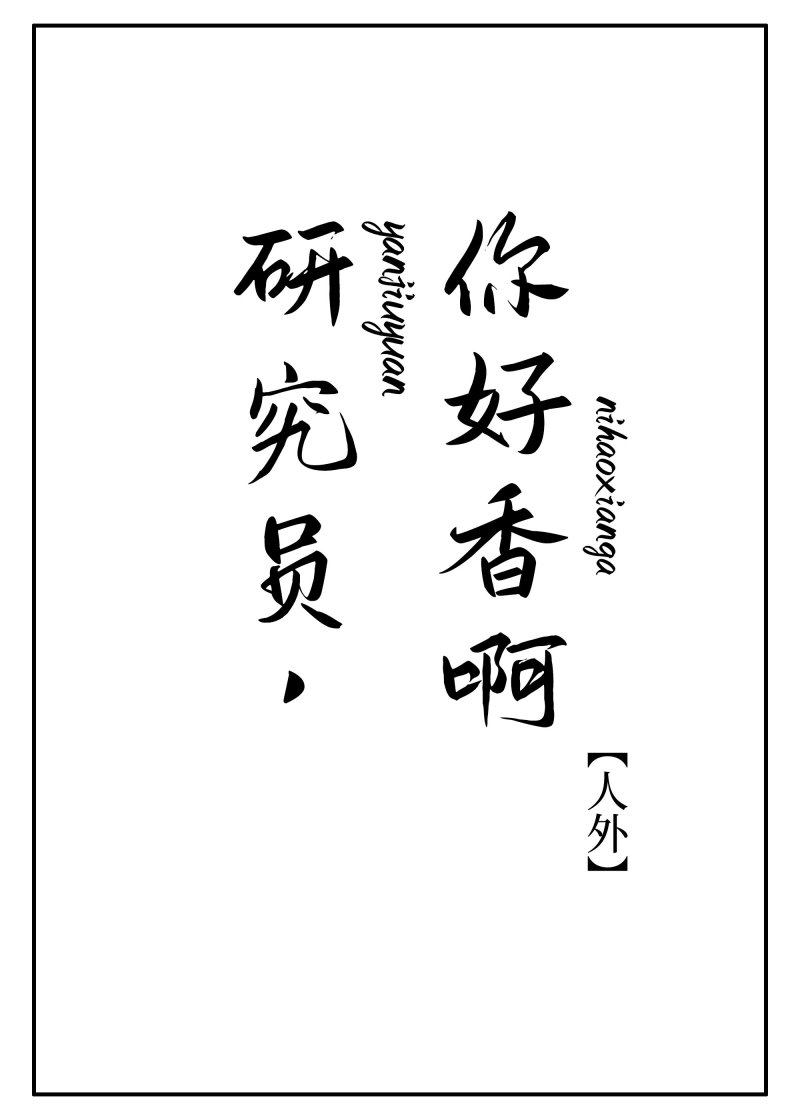 研究员，
yanjiuyuan
你好香啊
nihaoxianga
【人外】